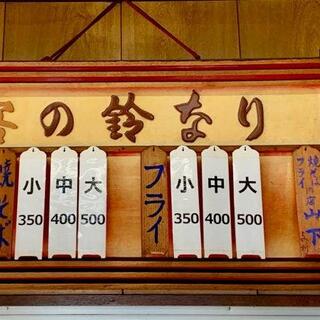 の鈴なり
焼そば
小
350
中
400
大
500
フライ
小
350
中
400
大
500
焼そば
フライの店
山下